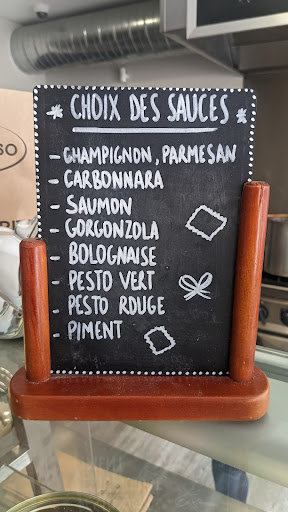 * CHOIX DES SAUCES *
- CHAMPIGNON, PARMESAN
- CARBONNARA
- SAUMON
- GORGONZOLA
- BOLOGNAISE
- PESTO VERT
- PESTO ROUGE
- PIMENT